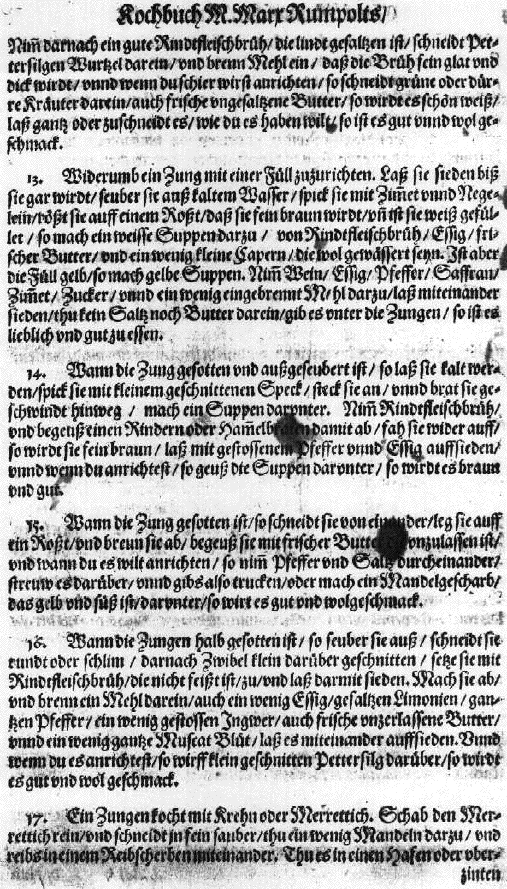 Kochbuch M. Marx Rumpolts/
Nim̃ darnach ein gute Rindtfleischbrüh/ die lindt gesaltzen ist/ schneidt Pet-
tersilgen Wurtzel darein/ vnd brenn Mehl ein/ daß die Brüh fein glat vnd
dick wirdt/ vnnd wenn du schier wirst anrichten/ so schneidt grüne oder dür-
re Kräuter darein/ auch frische vngesaltzene Butter/ so wirdt es schön weiß/
laß gantz oder zuschneidt es/ wie du es haben wilt/ so ist es gut vnnd wol ge-
schmack.
13. Widerumb ein Zung mit einer Füll zuzurichten. Laß sie sieden biß
sie gar wirdt/ seuber sie auß kaltem Wasser/ spick sie mit Zim̃et vnnd Nege-
lein/ rößt sie auff einem Roßt/ daß sie fein braun wirdt/ vñ ist sie weiß gefül-
let/ so mach ein weisse Suppen darzu/ von Rindtfleischbrüh/ Essig/ fri-
scher Butter/ vnd ein wenig kleine Capern/ die wol gewässert seyn. Ist aber
die Füll gelb/ so mach gelbe Suppen. Nim̃ Wein/ Essig/ Pfeffer/ Saffran/
Zim̃et/ Zucker/ vnnd ein wenig eingebrennt Mehl darzu/ laß miteinander
sieden/ thu kein Saltz noch Butter darein/ gib es vnter die Zungen/ so ist es
lieblich vnd gut zu essen.
14. Wann die Zung gesotten vnd außgeseubert ist/ so laß sie kalt wer-
den/ spick sie mit kleinem geschnittenen Speck/ steck sie an/ vnnd brat sie ge-
schwindt hinweg/ mach ein Suppen darunter. Nim̃ Rindtfleischbrüh/
vnd begeuß einen Rindern oder Ham̃elbraten damit ab/ fah sie wider auff/
so wirdt sie fein braun/ laß mit gestossenem Pfeffer vnnd Essig auffsieden/
vnnd wenn du anrichtest/ so geuß die Suppen darvnter/ so wirdt es braun
vnd gut.
15. Wann die Zung gesotten ist/ so schneidt sie von einander/ leg sie auff
ein Roßt/ vnd breun sie ab/ begeuß sie mit frischer Butter die vnzulassen ist/
vnd wann du es wilt anrichten/ so nim̃ Pfeffer vnd Saltz durcheinander/
streuw es darüber/ vnnd gibs also trucken/ oder mach ein Mandelgescharb/
das gelb vnd süß ist/ darvnter/ so wirt es gut vnd wolgeschmack.
16. Wann die Zungen halb gesotten ist/ so seuber sie auß/ schneidt sie
rundt oder schlim/ darnach Zwibel klein darüber geschnitten/ setze sie mit
Rindtfleischbrüh/ die nicht feißt ist/ zu/ vnd laß darmit sieden. Mach sie ab/
vnd brenn ein Mehl darein/ auch ein wenig Essig/ gesaltzen Limonien/ gan-
tzen Pfeffer/ ein wenig gestossen Ingwer/ auch frische vnzerlassene Butter/
vnnd ein wenig gantze Muscat Blüt/ laß es miteinander auffsieden. Vnnd
wenn du es anrichtest/ so wirff klein geschnitten Pettersilg darüber/ so wirdt
es gut vnd wol geschmack.
17. Ein Zungen kocht mit Krehn oder Merrettich. Schab den Mer-
rettich rein/ vnd schneidt jn fein sauber/ thu ein wenig Mandeln darzu/ vnd
reibs in einem Reibscherben miteinander. Thu es in einen Hafen oder vber-
zinten